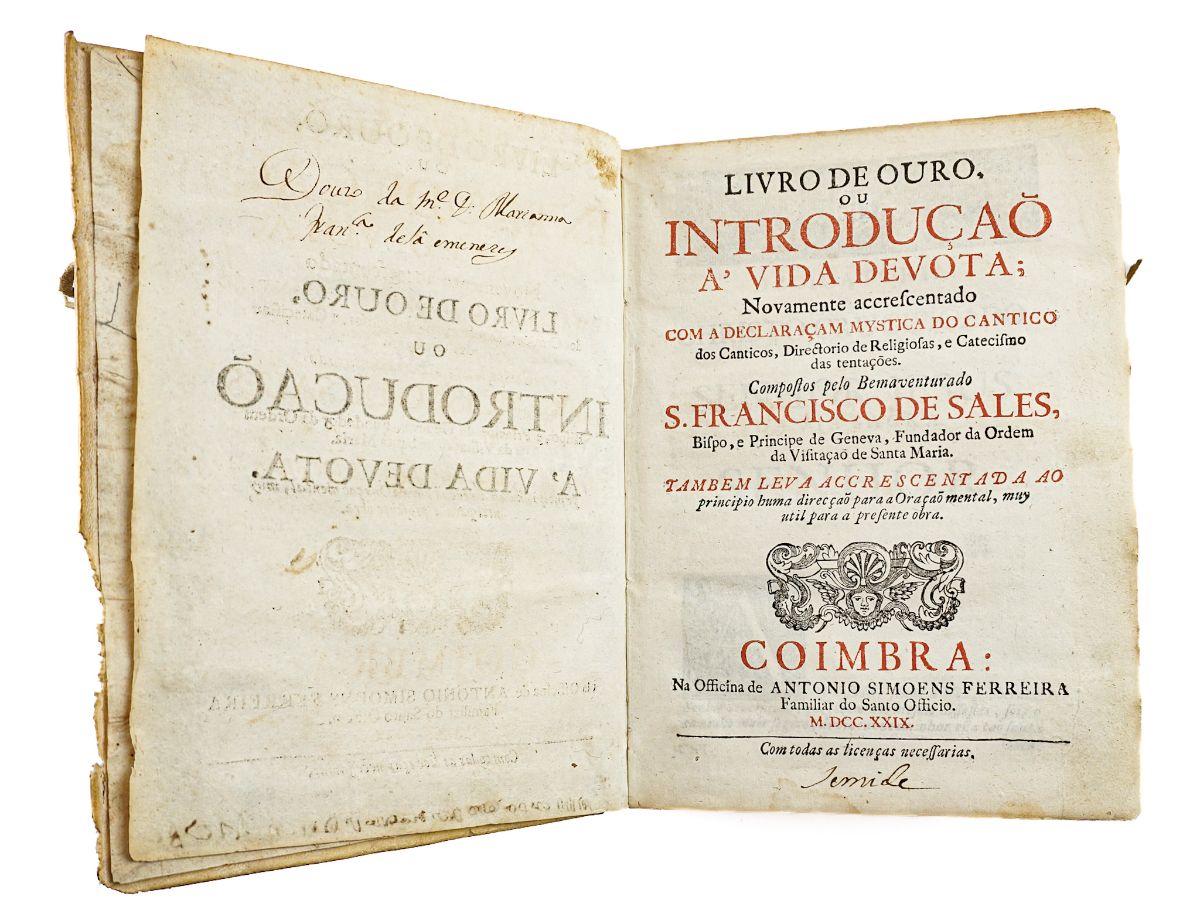 Douro da M.ᵉ D. Marianna
Fran.ᶜᵃ de Sâ e menezes
LIVRO DE OURO,
OU
INTRODUÇAÕ
A' VIDA DEVOTA,
LIVRO DE OURO.
OU
INTRODUÇAÕ
A' VIDA DEVOTA;
Novamente accreſcentado
COM A DECLARAÇAM MYSTICA DO CANTICO
dos Canticos, Directorio de Religioſas, e Catecismo
das tentações.
Compoſtos pelo Bemaventurado
S. FRANCISCO DE SALES,
Biſpo, e Principe de Geneva, Fundador da Ordem
da Viſitaçaõ de Santa Maria.
TAMBEM LEVA ACCRESCENTADA AO
principio huma direcçaõ para a Oraçaõ mental, muy
util para a preſente obra.
COIMBRA:
Na Officina de ANTONIO SIMOENS FERREIRA
Familiar do Santo Officio.
M. DCC. XXIX.
Com todas as licenças neceſſarias.
Semide